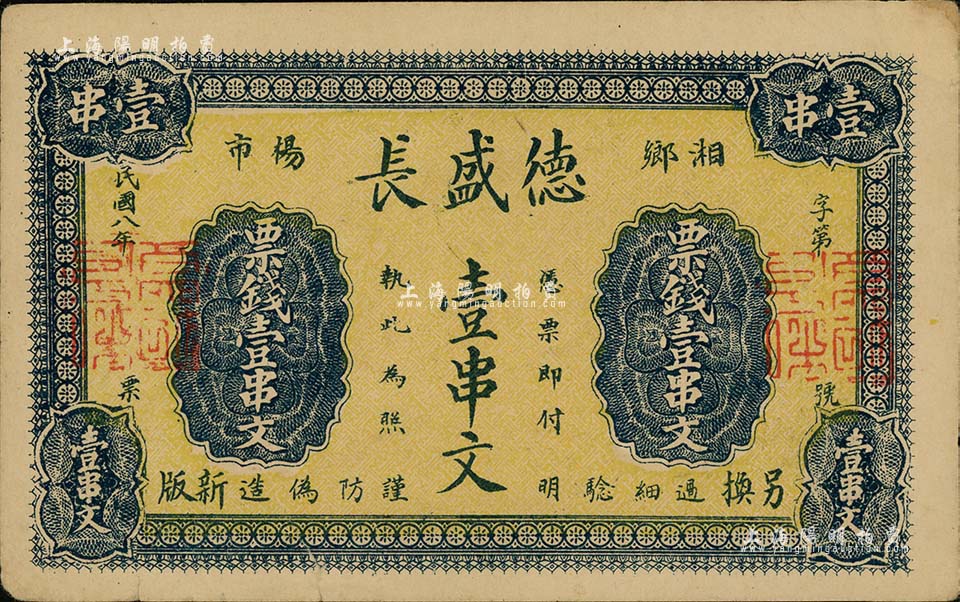 上海陽明拍賣
www.yangmingauction.com
壹串
壹串
湘鄉
楊市
德盛長
字第
號
票錢壹串文
憑票即付
壹串文
執此為照
票錢壹串文
民國八年
票
壹串文
壹串文
另換過細驗明謹防偽造新版
上海陽明拍賣
www.yangmingauction.com
上海陽明拍賣
www.yangmingauction.com